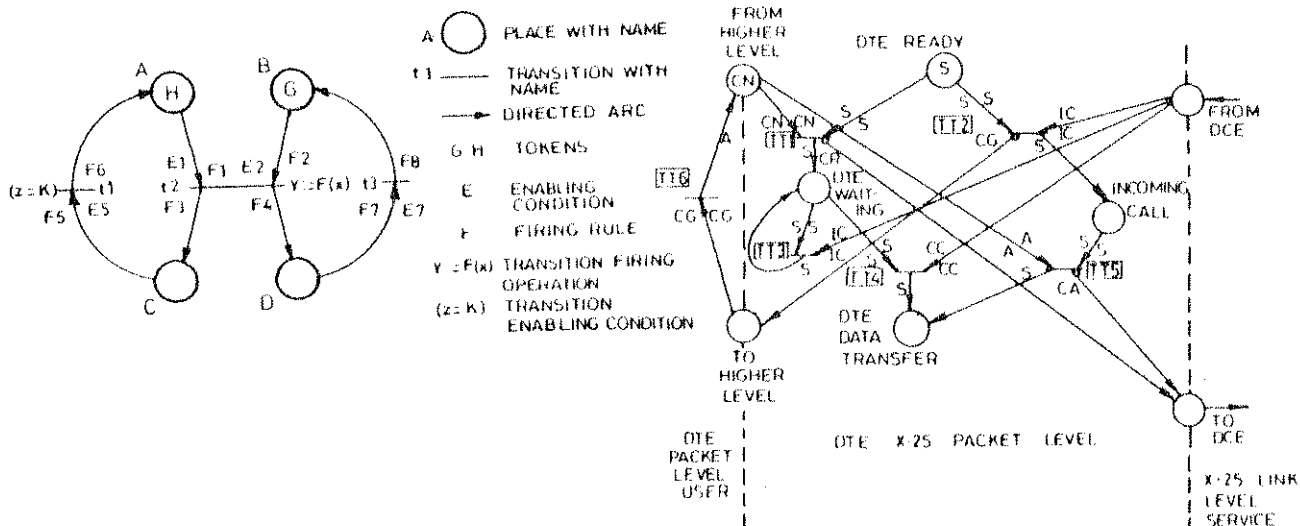 A
H
B
G
F6
E1
F1
E2
F2
F8
(z=K)
t1
t2
Y:=F(x)
t3
F5
E5
F3
F4
F7
E7
C
D
A PLACE WITH NAME
t1 TRANSITION WITH
NAME
DIRECTED ARC
G H TOKENS
E ENABLING
CONDITION
F FIRING RULE
Y:=F(x) TRANSITION FIRING
OPERATION
(z=K) TRANSITION
ENABLING CONDITION
FROM
HIGHER
LEVEL
CN
DTE READY
S
FROM
DCE
CN
CN
TT1
S
S
S
CR
S
S
TT2
CG
S
IC
IC
A
TT6
CG
CG
DTE
WAIT-
ING
S
S
TT3
S
IC
IC
S
S
TT4
S
CC
CC
INCOMING
CALL
S
S
A
A
S
TT5
CA
DTE
DATA
TRANSFER
TO
HIGHER
LEVEL
TO
DCE
DTE
PACKET
LEVEL
USER
DTE X-25 PACKET LEVEL
X-25 LINK
LEVEL
SERVICE